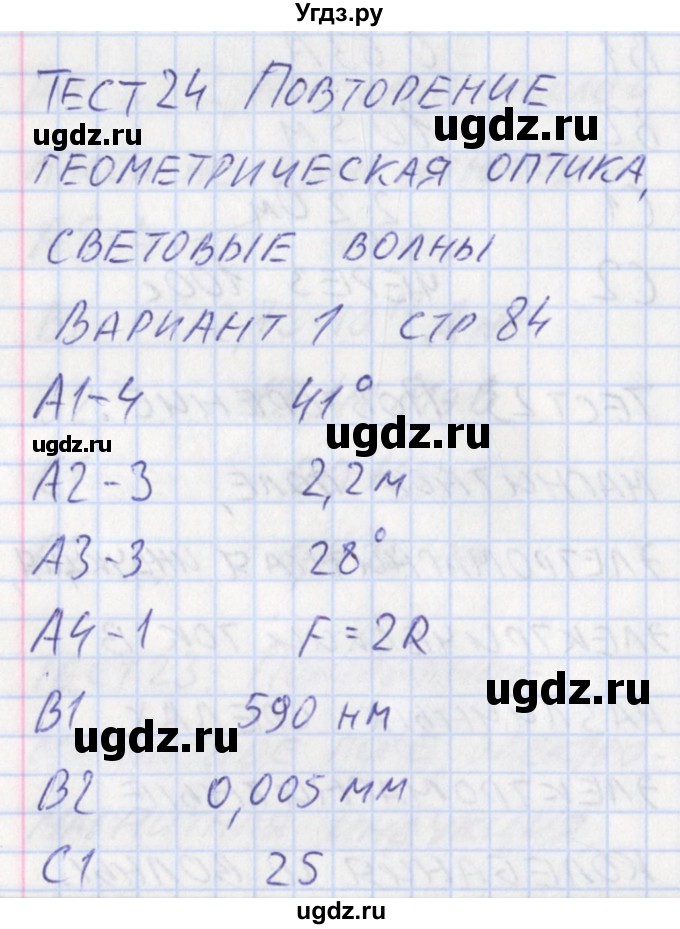 Угдз.ру
ТЕСТ 24 ПОВТОРЕНИЕ
ugdz.ru ugdz.ru
ГЕОМЕТРИЧЕСКАЯ ОПТИКА,
СВЕТОВЫЕ ВОЛНЫ
ВАРИАНТ 1 СТР 84
А1-4 41°
ugdz.ru ugdz.ru
А2-3 2,2 м
А3-3 28°
А4-1 F = 2R
ugdz.ru
В1 590 нм
ugdz.ru
В2 0,005 мм
С1 25
ugdz.ru